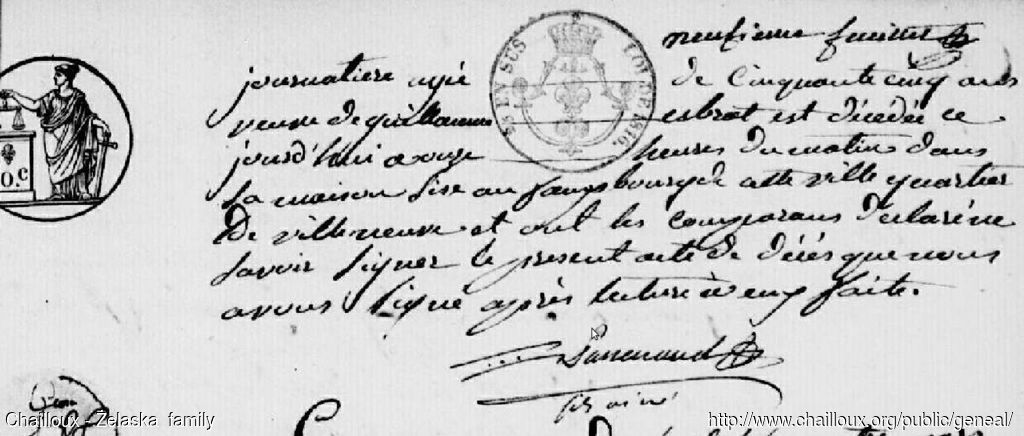 neufieme feuillet
journaliere agée de Cinquante cinq ans
veuve de guillaume esbrat est décédée ce
jourd'hui a onze heures du matin dans
la maison sise au faugsbourg de cette ville quartier
de villeneuve et ont les comparans declaré ne
savoir signer le present acte de décés que nous
avons signé après lecture à eux faite.
EN SUS
0.c
Chailloux - Zelaska family
http://www.chailloux.org/public/geneal/